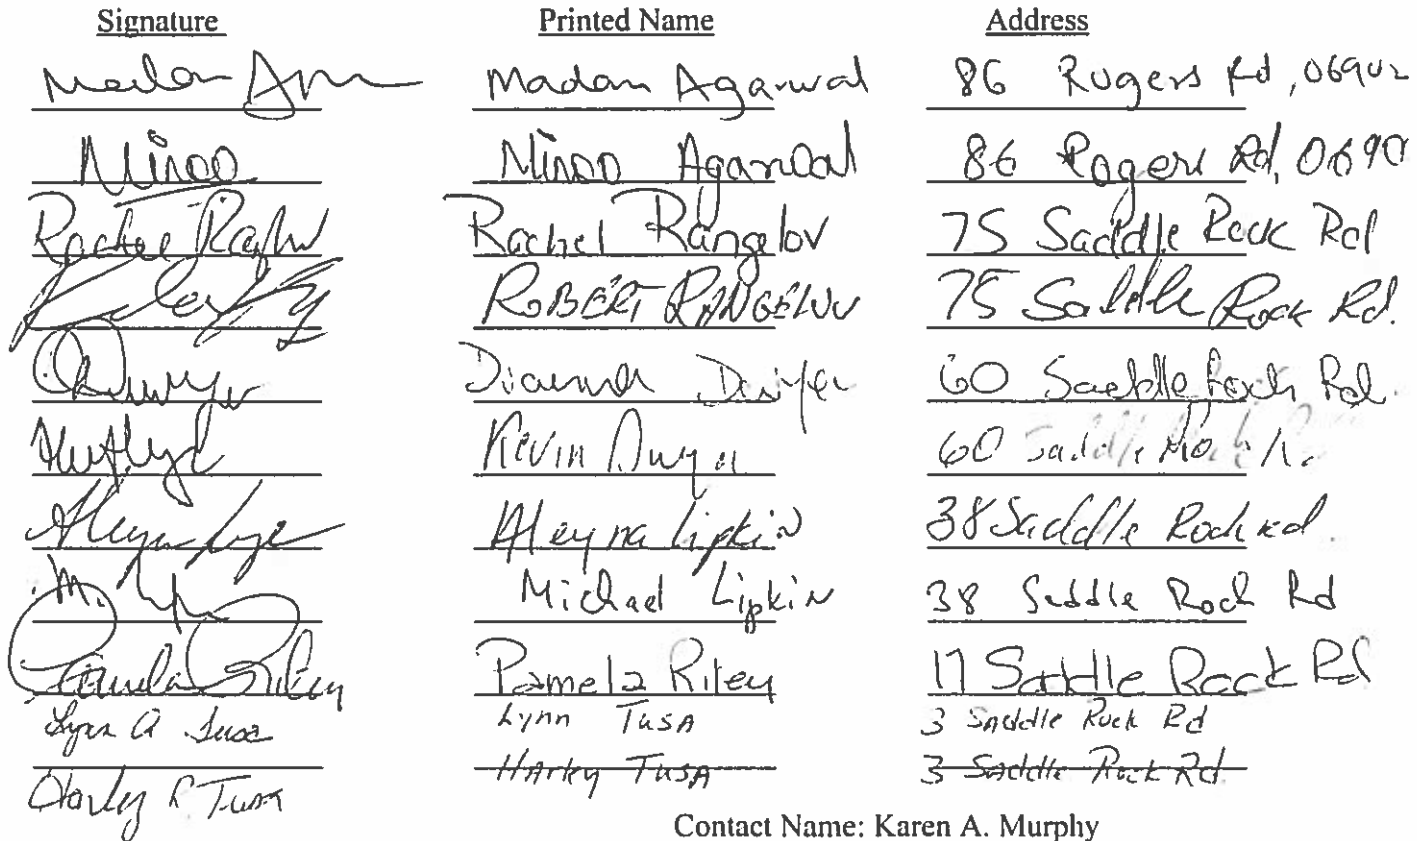 Signature Printed Name Address
Madan Agarwal 86 Rogers Rd, 06902
Minoo Minoo Agarwal 86 Rogers Rd, 0690
Rachel Rangelov 75 Saddle Rock Rd
ROBERT RANGELOV 75 Saddle Rock Rd.
Dianna Dwyer 60 Saddle Rock Rd.
Kevin Dwyer 60 Saddle Rock
Aleyna Lipkin 38 Saddle Rock Rd.
M. Michael Lipkin 38 Saddle Rock Rd
Pamela Riley Pamela Riley 17 Saddle Rock Rd
Lynn A Tusa Lynn Tusa 3 Saddle Rock Rd
Harley Tusa 3 Saddle Rock Rd.
Harley R Tusa
Contact Name: Karen A. Murphy